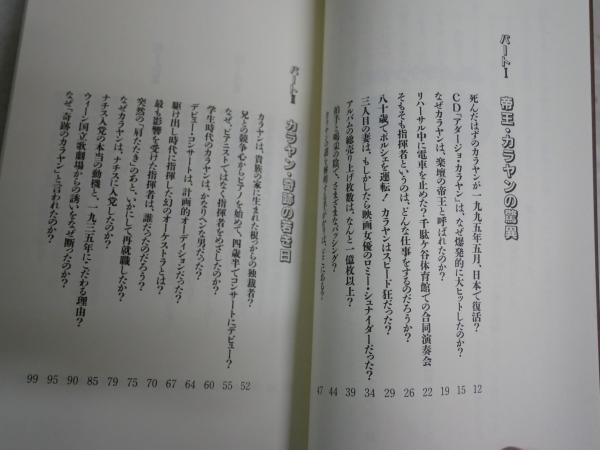 パートI 帝王・カラヤンの驚異
死んだはずのカラヤンが一九九五年五月、日本で復活? 12
CD「アダージョ・カラヤン」は、なぜ爆発的に大ヒットしたのか? 15
なぜカラヤンは、楽壇の帝王と呼ばれたのか? 19
リハーサル中に電車を止めた? 千駄ケ谷体育館での合同演奏会 22
そもそも指揮者というのは、どんな仕事をするのだろうか? 26
八十歳でポルシェを運転! カラヤンはスピード狂だった? 29
三人目の妻は、もしかしたら映画女優のロミー・シュナイダーだった? 34
アルバムの総売り上げ枚数は、なんと一億枚以上? 39
拍手と喝采の陰で、さまざまなバッシング? 44
47
パートII カラヤン・奇跡の若き日
カラヤンは、貴族の家に生まれた根っからの独裁者? 52
兄との競争心からピアノを始めて、四歳半でコンサートにデビュー? 55
なぜ、ピアニストではなく指揮者をめざしたのか? 60
学生時代のカラヤンは、かなりヘンな男だった? 64
デビュー・コンサートは、計画的オーディションだった? 67
駆け出し時代に指揮した幻のオーケストラとは? 70
最も影響を受けた指揮者は、誰だったのだろう? 75
突然の「肩たたき」のあと、いかにして再就職したか? 79
なぜカラヤンは、ナチスに入党したのか? 85
ナチス入党の本当の動機と、一九三五年にこだわる理由? 90
ウィーン国立歌劇場からの誘いをなぜ断ったのか? 95
なぜ、「奇跡のカラヤン」と言われたのか? 99